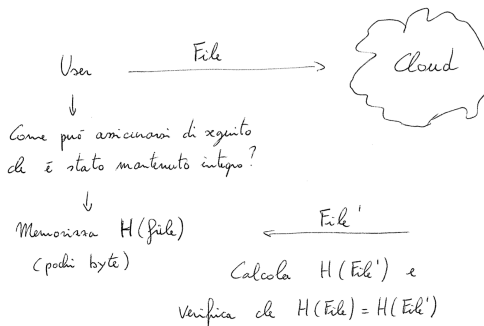 File
User
Cloud
Come può assicurarsi di seguito
che è stato mantenuto integro?
Memorizza H(file)
(pochi byte)
File'
Calcola H(File') e
Verifica che H(File) = H(File')